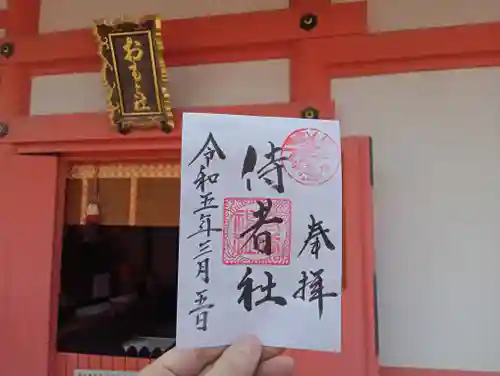 おもと社
奉拝
侍者社
令和五年三月五日